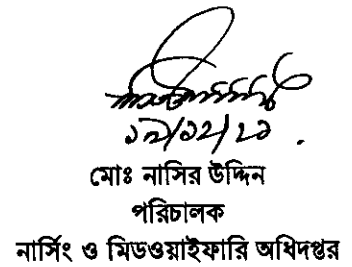 ১৯/১২/২১
মোঃ নাসির উদ্দিন
পরিচালক
নার্সিং ও মিডওয়াইফারি অধিদপ্তর